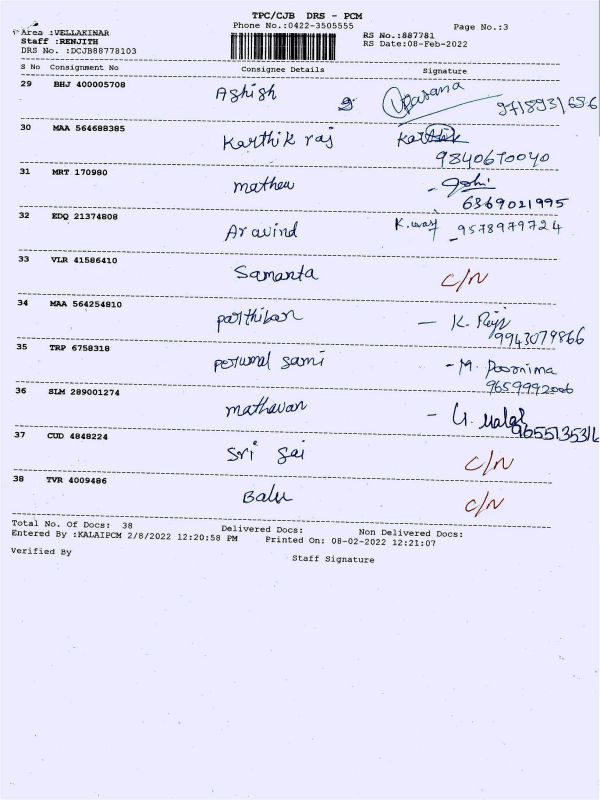 TPC/CJB DRS - PCM
Phone No.:0422-3505555 Page No.:3
Area :VELLAKINAR RS No.:887781
Staff :RENJITH RS Date:08-Feb-2022
DRS No. :DCJB88778103
S No Consignment No Consignee Details Signature
29 BHJ 400005708 Ashish Upasana
9718931656
30 MAA 564688385 Karthik raj Karthik
9840670040
31 MRT 170980 mathew
6369021995
32 EDQ 21374808 Aravind 9578979724
33 VLR 41586410 Samanta C/N
34 MAA 564254810 parthiban - K. Raji
9943079866
35 TRP 6758318 perumal sami - M. Poornima
9659992006
36 SLM 289001274 mathavan
37 CUD 4848224 Sri Sai C/N
38 TVR 4009486 Balu C/N
Total No. Of Docs: 38 Delivered Docs: Non Delivered Docs:
Entered By :KALAIPCM 2/8/2022 12:20:58 PM Printed On: 08-02-2022 12:21:07
Verified By Staff Signature